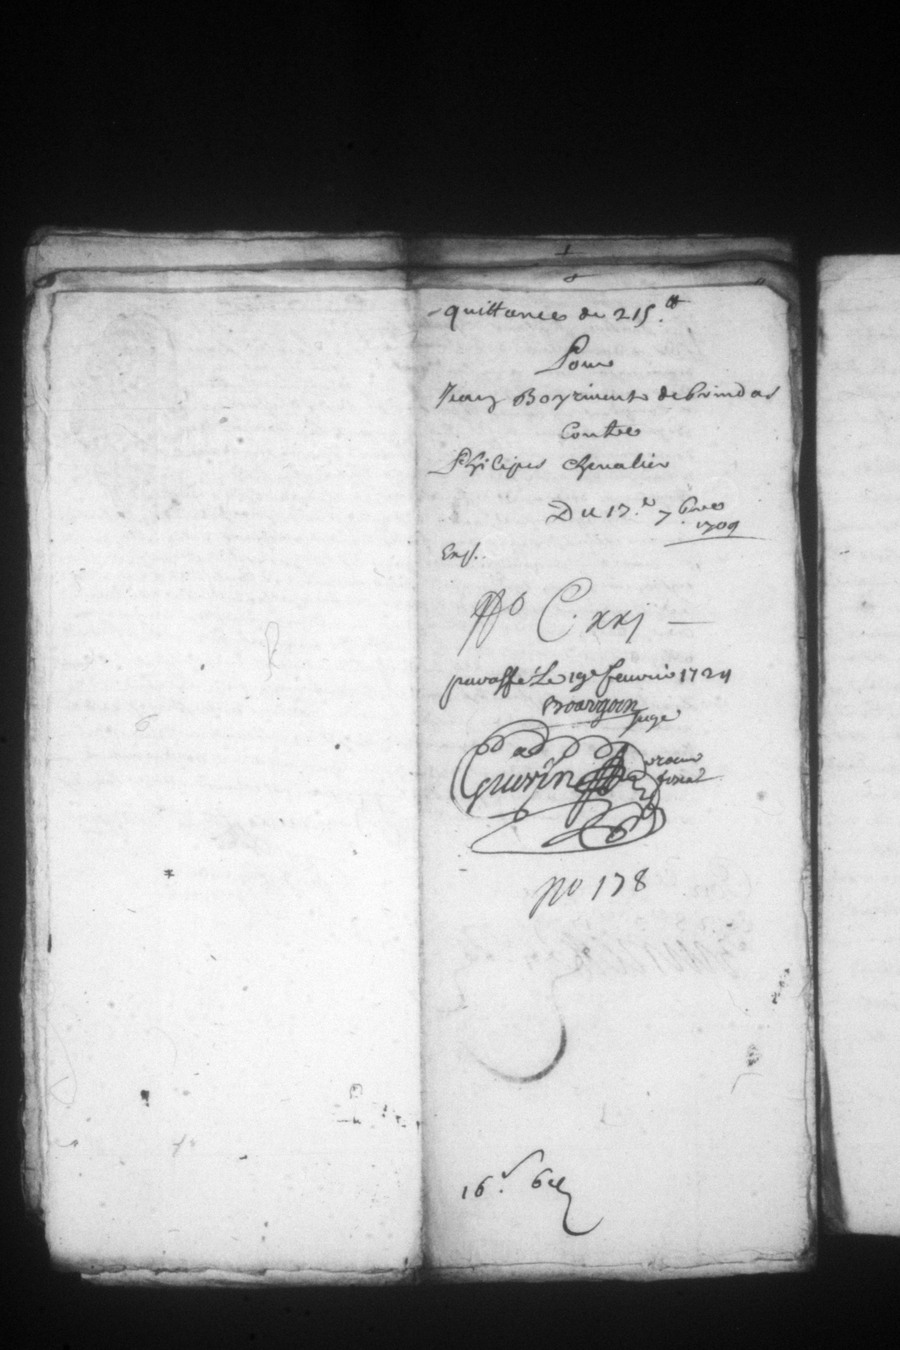 quittance de 215.tt
Pour
Jean Boyriments de brindas
Contre
Philipes chevalier
Du 17.e 7bre
1709
Exp.
No C. xxj
paraffé Le 19e feuvrié 1724
Bourgoin
juge
Guerin
no 178
16.s 6d